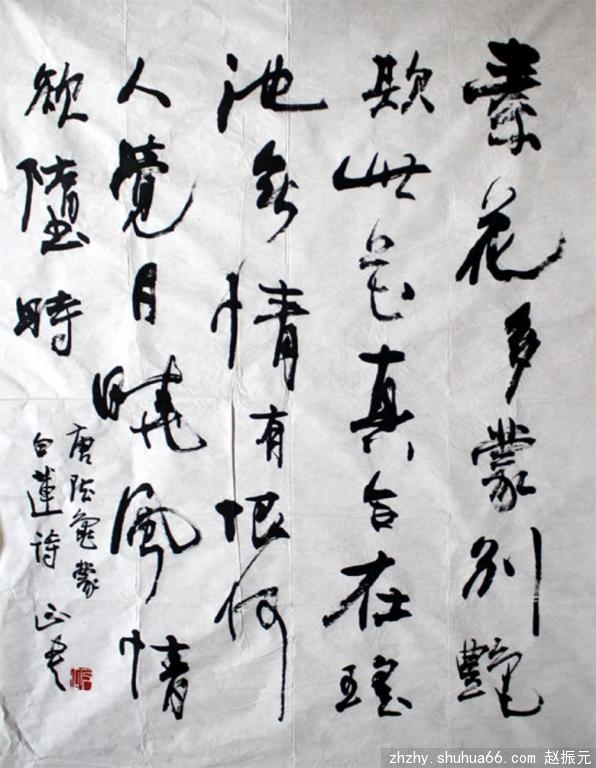 素花多蒙别艷
欺此花真合在瑶
池無情有恨何
人覺月曉風情
欲墮時
唐陆龜蒙
白蓮詩
zhzhy.shuhua66.com 赵振元